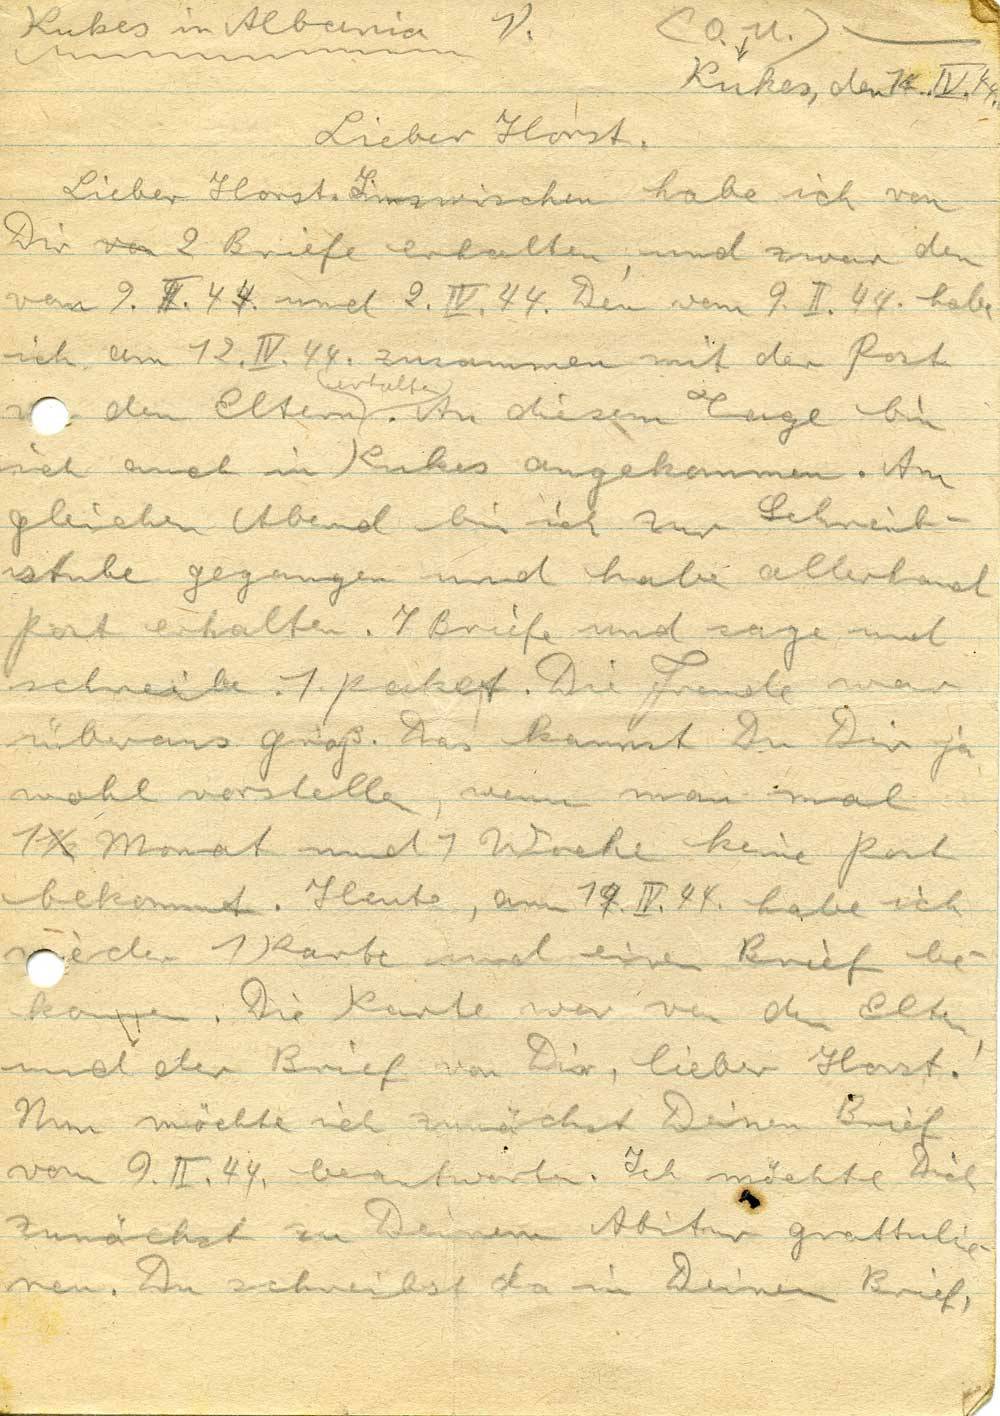 Kukes in Albania V. (O.U.)
Kukes, den IV. 44.
Lieber Horst.
Lieber Horst. Inzwischen habe ich von
Dir von 2 Briefe erhalten, und zwar den
vom 9. II. 44. und 2. IV. 44. Den vom 9. II. 44. habe
ich am 12. IV. 44. zusammen mit der Post
den Eltern (erhalten). An diesem Tage bin
ich auch in Kukes angekommen. Am
gleichen Abend bin ich zur Schreib-
stube gegangen und habe allerhand
Post erhalten. 7 Briefe und sage und
schreibe 1 Paket. Die Freude war
überaus groß. Das kannst Du Dir ja
wohl vorstellen, wenn man mal
1 Monat und 1 Woche keine Post
bekommt. Heute, am IV. 44. habe ich
wieder 1 Karte und einen Brief be-
kommen. Die Karte war von den Eltern,
und der Brief von Dir, lieber Horst!
Nun möchte ich zunächst Deinen Brief
vom 9. II. 44. beantworten. Ich möchte Dich
zunächst zu Deinem Abitur grattulie-
ren. Du schreibst da in Deinen Brief,